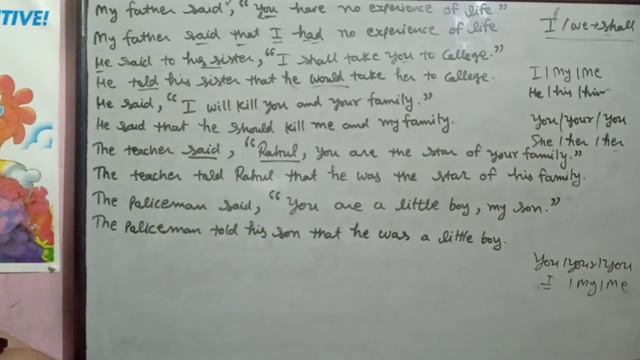 TIVE!
My father said, "You have no experience of life"
My father said that I had no experience of life
He said to his sister, "I shall take you to College."
He told his sister that he would take her to College.
He said, "I will kill you and your family."
He said that he should kill me and my family.
The teacher said, "Rahul, you are the star of your family."
The teacher told Rahul that he was the star of his family.
The Policeman said, "You are a little boy, my son."
The Policeman told his son that he was a little boy.
I / we → shall
I / My / Me
He / his / him
You / your / you
She / her / her
You / your / you
I / My / Me